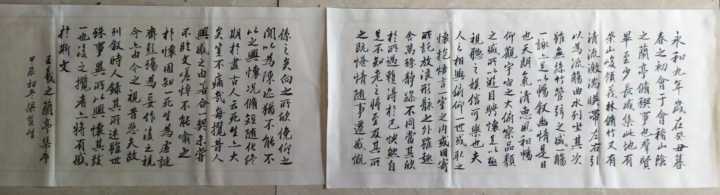 永和九年歲在癸丑暮
春之初會于會稽山陰
之蘭亭脩稧事也羣賢
畢至少長咸集此地有
崇山峻領茂林脩竹又有
清流激湍映帶左右引
以為流觴曲水列坐其次
雖無絲竹管弦之盛一觴
一詠亦足以暢叙幽情是日
也天朗氣清惠風和暢
仰觀宇宙之大俯察品類
之盛所以遊目騁懷足以極
視聽之娛信可樂也夫
人之相與俯仰一世或取之
懷抱悟言一室之內或因寄
所託放浪形骸之外雖趣
舍萬殊靜躁不同當其欣
於所遇蹔得於己快然自
足不知老之將至及其所
之既惓情隨事遷感慨
係之矣向之所欣俛仰之
間以為陳迹猶不能不
以之興懷況脩短隨化終
期於盡古人云死生亦大
矣豈不痛哉每攬昔人
興感之由若合一契未嘗
不臨文嗟悼不能喻之
於懷固知死生為虛誕
齊彭殤為妄作後之視
今亦由今之視昔悲夫故
列叙時人錄其所述雖世
殊事異所以興懷其致
一也後之攬者亦將有感
於斯文
王羲之蘭亭集序
甲辰初冬